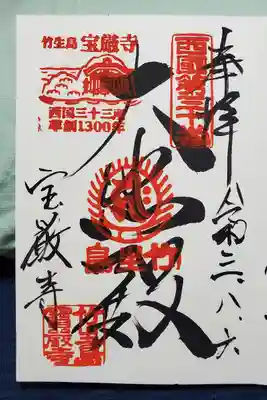 奉拝
令和三.八.六
西国第三十番
大悲殿
竹生島
宝厳寺
竹生島 宝厳寺
西国三十三所
草創1300年
竹生島
寳厳寺